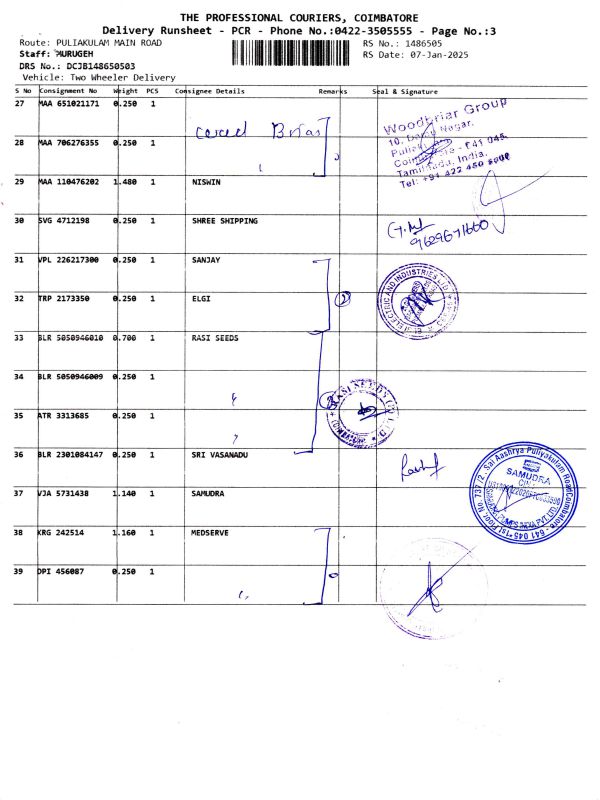 THE PROFESSIONAL COURIERS, COIMBATORE
Delivery Runsheet - PCR - Phone No.:0422-3505555 - Page No.:3
Route: PULIAKULAM MAIN ROAD
RS No.: 1486505
Staff: MURUGEH
RS Date: 07-Jan-2025
DRS No.: DCJB148650503
Vehicle: Two Wheeler Delivery
S No Consignment No Weight PCS Consignee Details Remarks Seal & Signature
27 MAA 651021171 0.250 1
28 MAA 706276355 0.250 1
Woodbriar Group
Nagar,
Coimbatore - 641 045,
Tamilnadu, India.
Tel: +91 422 450
29 MAA 110476202 1.480 1 NISWIN
30 SVG 4712198 0.250 1 SHREE SHIPPING
9629671660
31 VPL 226217300 0.250 1 SANJAY
32 TRP 2173350 0.250 1 ELGI
2
ELECTRIC AND INDUSTRIES LTD
33 BLR 5050946010 0.700 1 RASI SEEDS
34 BLR 5050946009 0.250 1
35 ATR 3313685 0.250 1
36 BLR 2301084147 0.250 1 SRI VASANADU
37 VJA 5731438 1.140 1 SAMUDRA
SAMUDRA
38 KRG 242514 1.160 1 MEDSERVE
39 DPI 456087 0.250 1